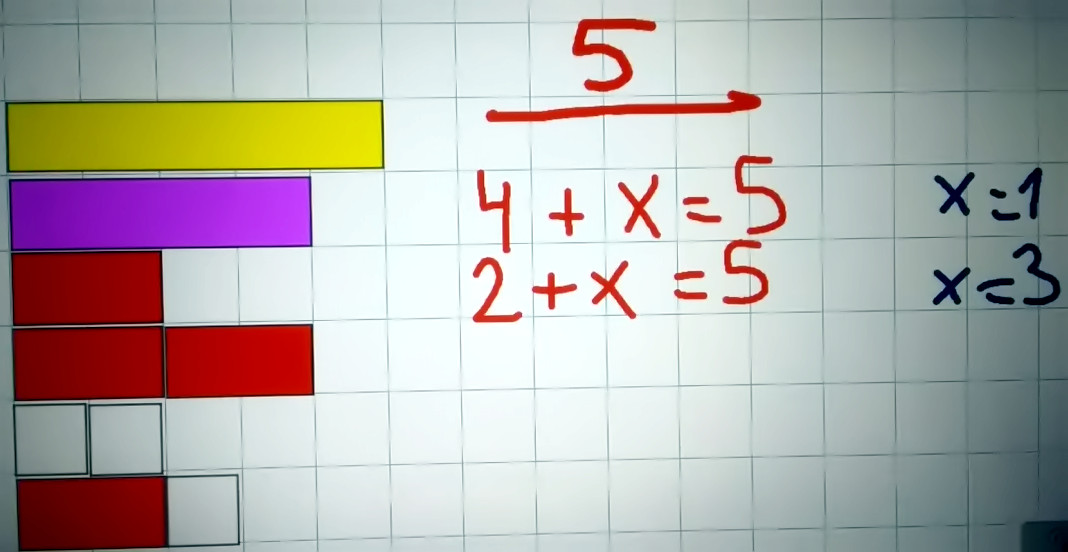 5
4 + x = 5 x = 1
2 + x = 5 x = 3